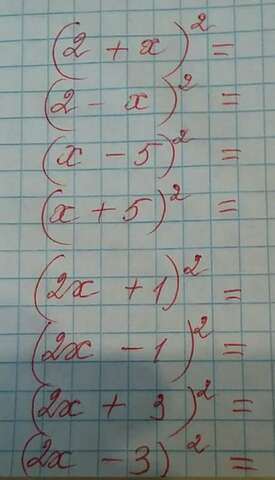 (2 + x)² =
(2 - x)² =
(x - 5)² =
(x + 5)² =
(2x + 1)² =
(2x - 1)² =
(2x + 3)² =
(2x - 3)² =